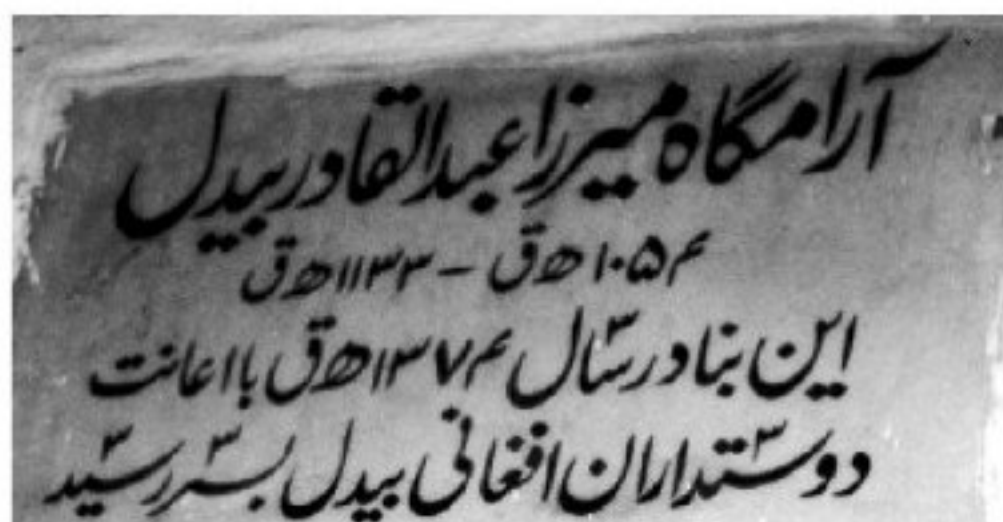 آرامگاه میرزا عبدالقادر بیدل
۱۰۵۴ ھ ق - ۱۱۳۳ ھ ق
این بنا در سال ۱۳۷۴ ھ ق با اعانت
دوستداران افغانی بیدل بسر رسید